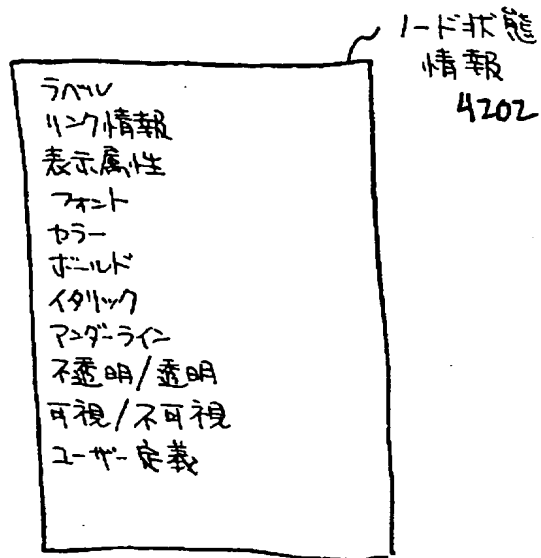 ノード状態
情報
4202
ラベル
リンク情報
表示属性
フォント
カラー
ボールド
イタリック
アンダーライン
不透明/透明
可視/不可視
ユーザー定義